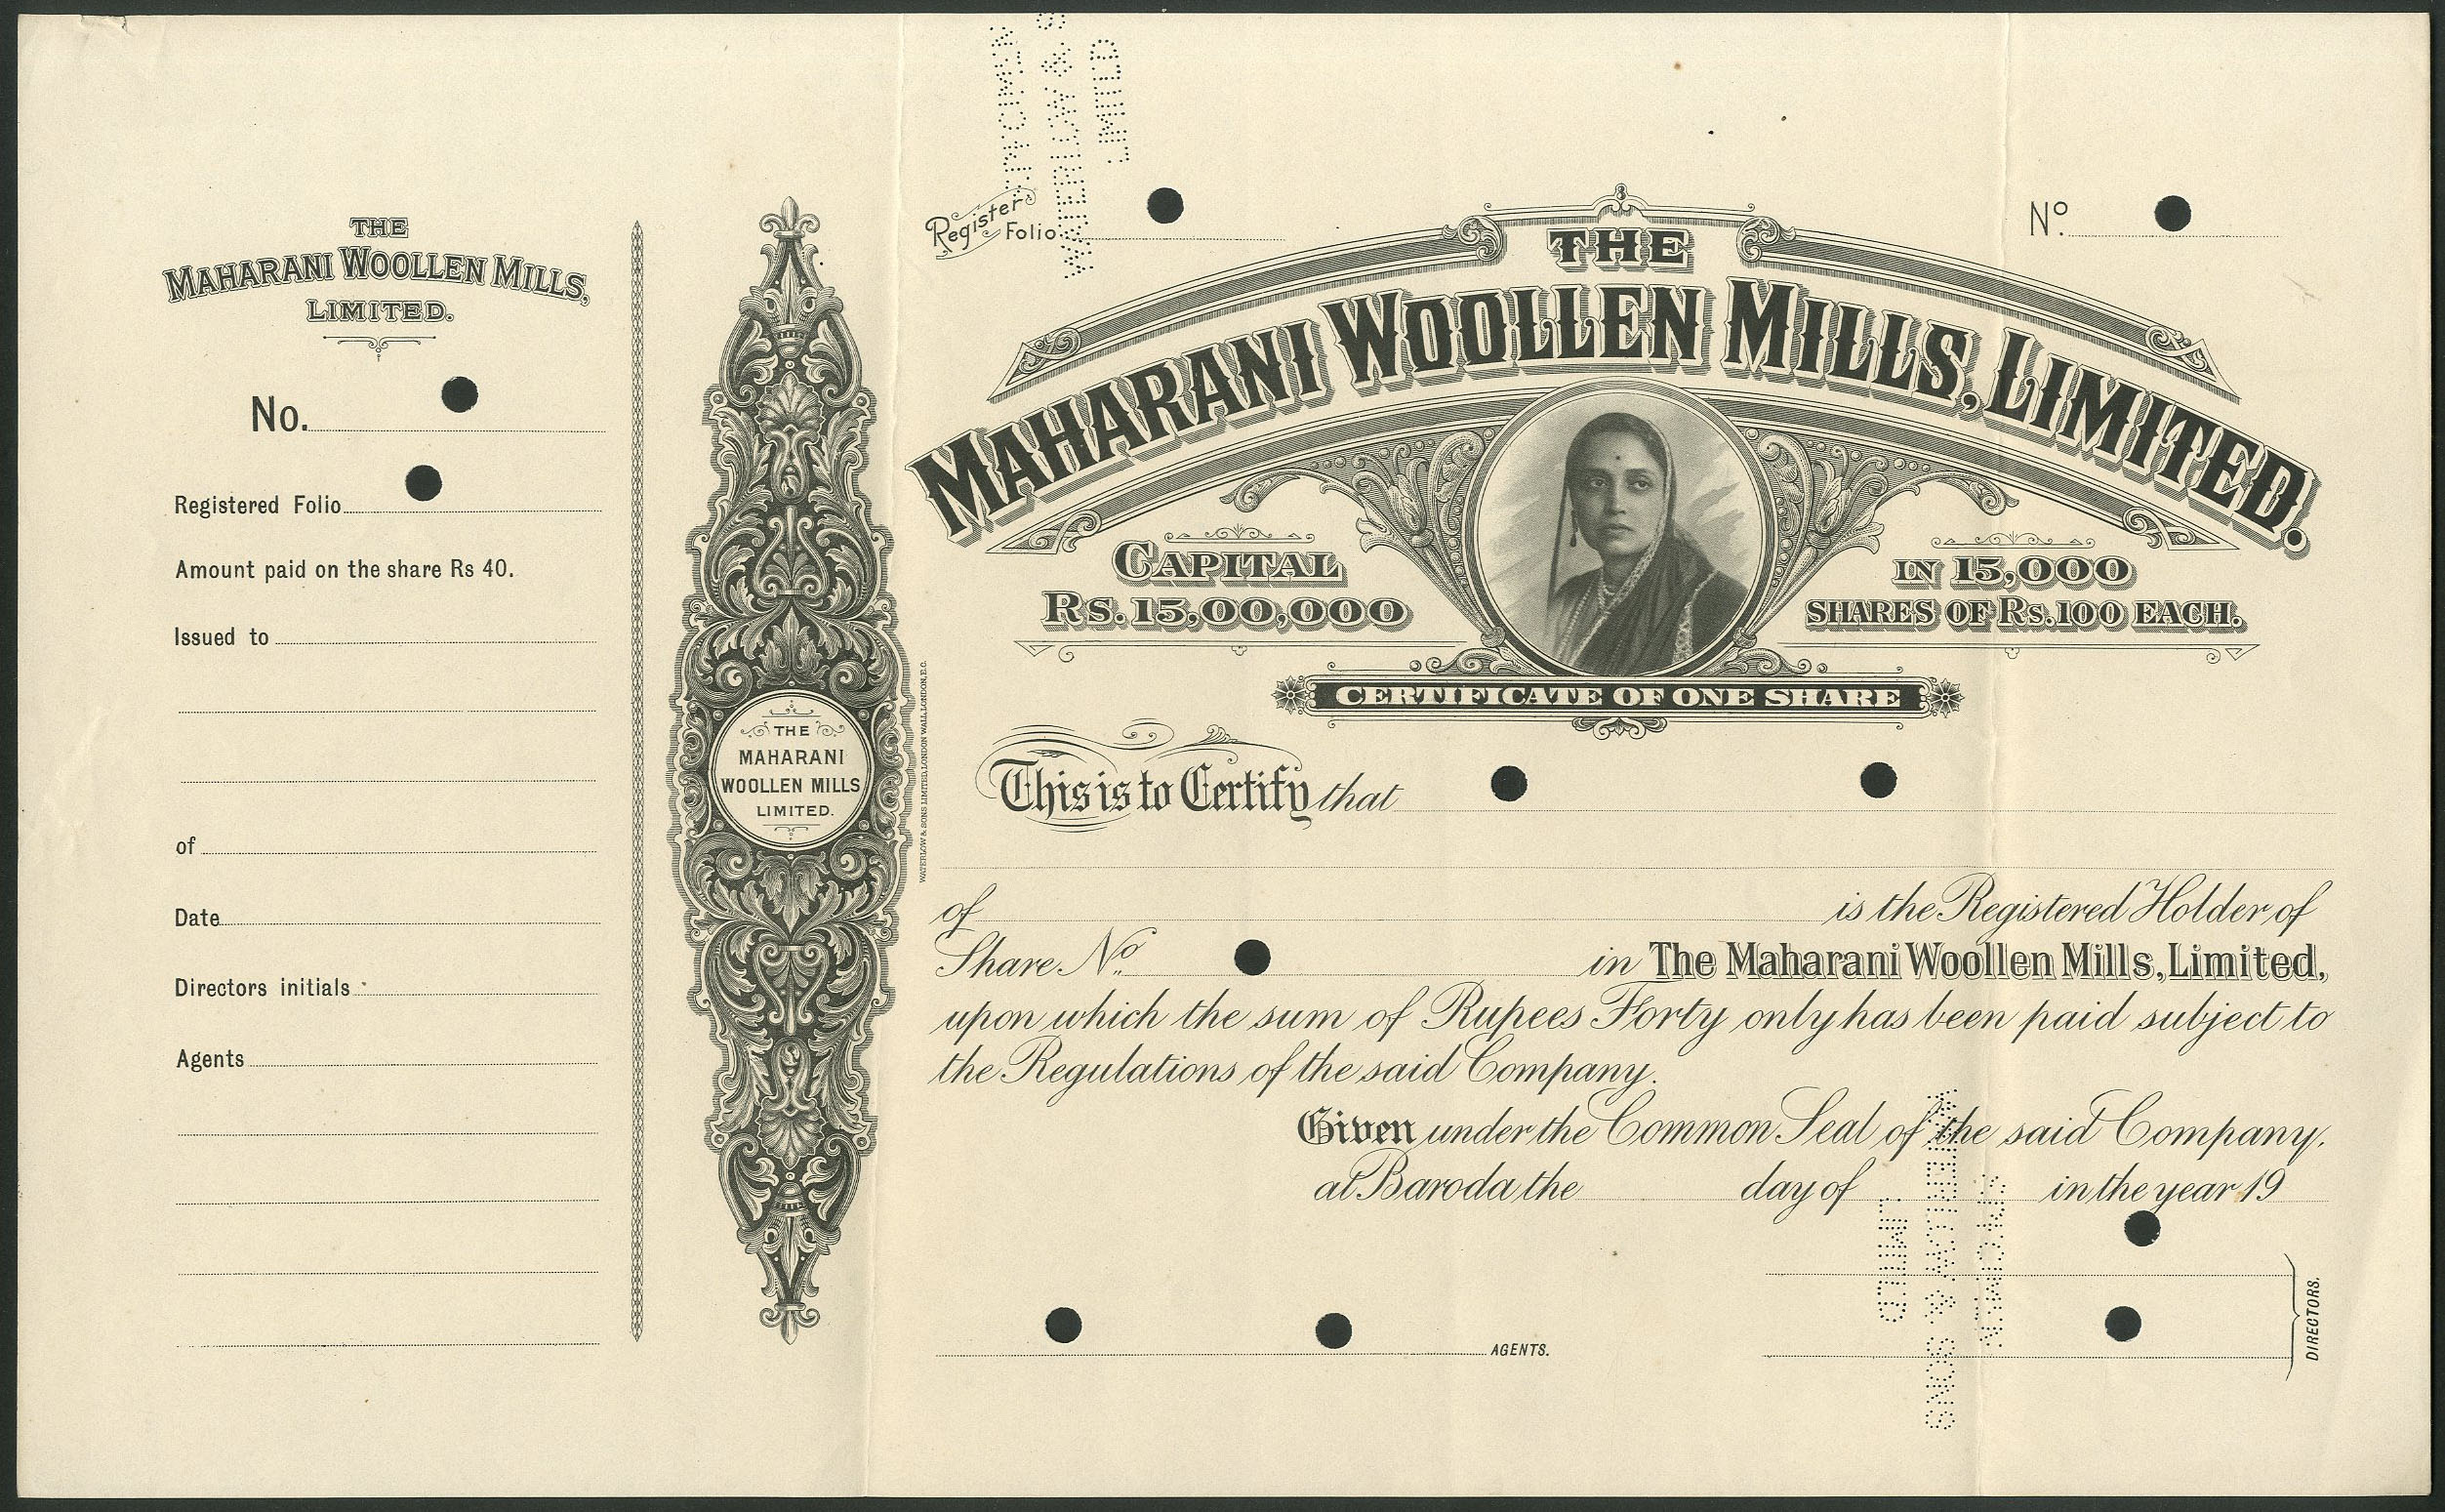 THE
MAHARANI WOOLLEN MILLS,
LIMITED.
No.
Registered Folio
Amount paid on the share Rs 40.
Issued to
of
Date
Directors initials
Agents
THE
MAHARANI
WOOLLEN MILLS
LIMITED.
WATERLOW & SONS LIMITED, LONDON WALL, LONDON, E.C.
SPECIMEN
WATERLOW & S
LIMITED
Register Folio
No.
THE
MAHARANI WOOLLEN MILLS, LIMITED.
CAPITAL
RS. 15,00,000
IN 15,000
SHARES OF RS. 100 EACH.
CERTIFICATE OF ONE SHARE
This is to Certify that
of is the Registered Holder of
Share No. in The Maharani Woollen Mills, Limited,
upon which the sum of Rupees Forty only has been paid subject to
the Regulations of the said Company.
Given under the Common Seal of the said Company.
at Baroda the day of in the year 19
WATERLOW & SONS
LIMITED
SPECIMEN
AGENTS.
DIRECTORS.